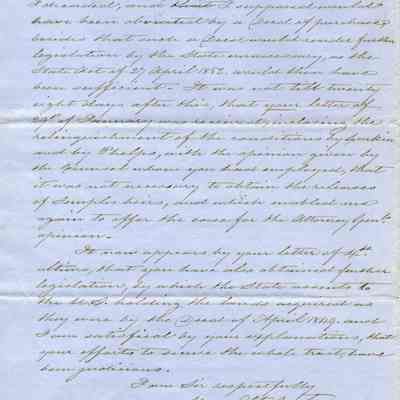 I demanded, and I supposed would
have been obviated by a Deed of purchase
besides that such a Deed would render further
legislation by the State unnecessary, as the
State Act of 27 April 1852 would then have
been sufficient. It was not till twenty
eight days after this, that your letter of
of January was received, inclosing the
relinquishment of the conditions by
and by Phelps, with the opinion given by
the Counsel whom you had employed, that
it was not necessary to obtain the releases
of Semples heirs, and which enabled me
again to offer the case for the Attorney Genls.
opinion.
It now appears by your letter of 4th.
ultimo, that you have also obtained further
legislation, by which the State assents to
the U.S. holding the lands acquired as
they were by the Deed of April 1849. and
I am satisfied by your explanations, that
your efforts to secure the whole tract, have
been judicious.
I am Sir respectfully